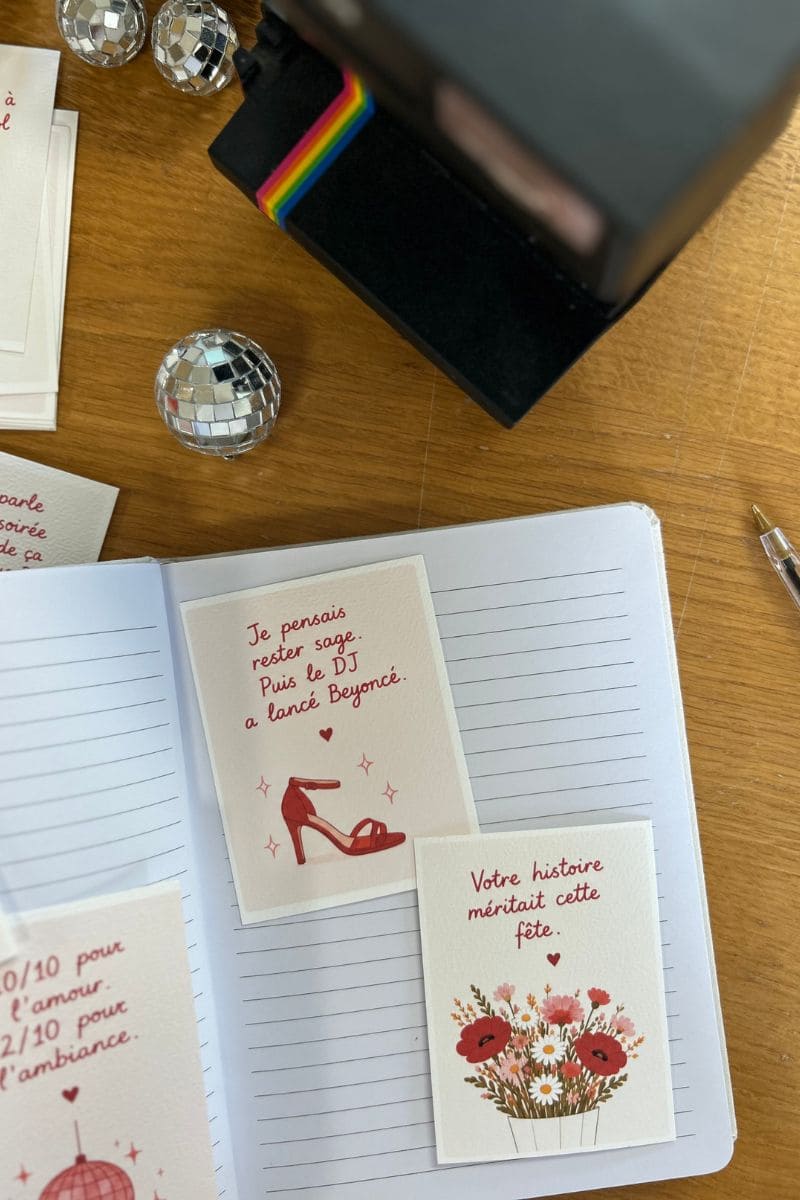 à
parle
soirée
de ça
Je pensais
rester sage.
Puis le DJ
a lancé Beyoncé.
Votre histoire
méritait cette
fête.
0/10 pour
l'amour.
2/10 pour
l'ambiance.